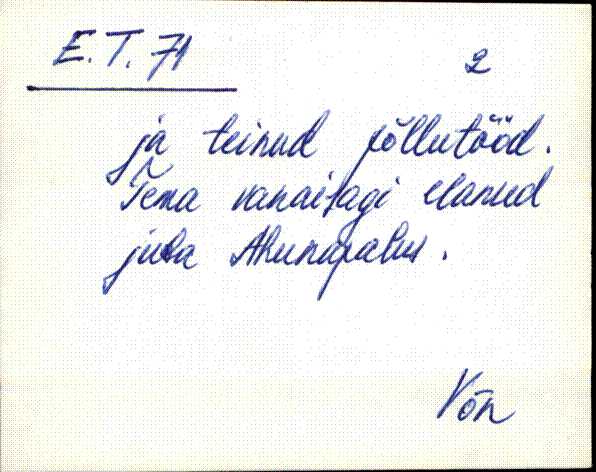 E. T. 71
2
ja teinud põllutööd.
Tema vanaisagi elanud
juba Ahunapalus.
Võn